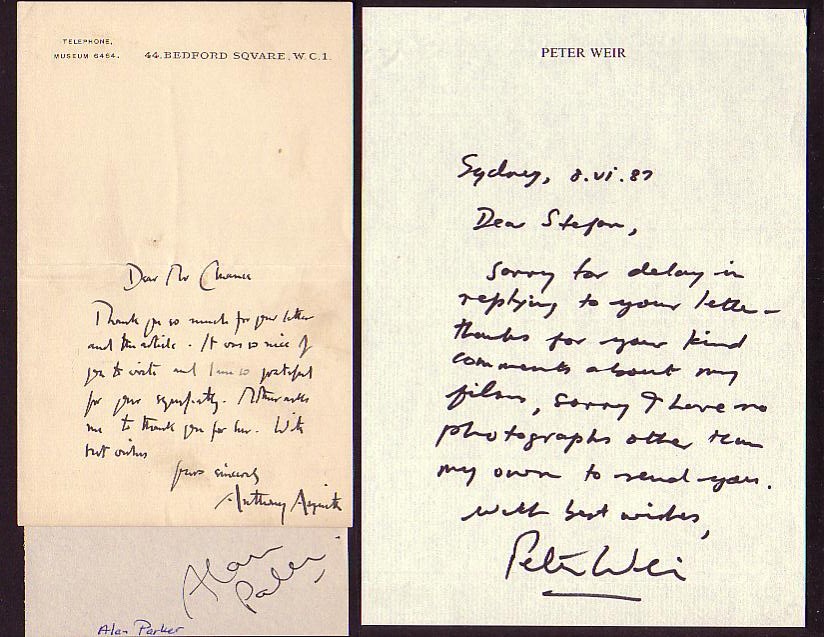 TELEPHONE,
MUSEUM 6464.
44. BEDFORD SQVARE, W.C.1.
Dear Mr
Thank you so much for your letter
and the article. It was so nice of
you to write and I am so grateful
for your sympathy. Mother asks
me to thank you for her. With
best wishes
yours sincerely
Anthony Asquith
Alan
Parker
Alan Parker
PETER WEIR
Sydney, 8.vi.87
Dear Stefan,
Sorry for delay in
replying to your letter -
thanks for your kind
comments about my
films, sorry I have no
photographs other than
my own to send you.
With best wishes,
Peter Weir